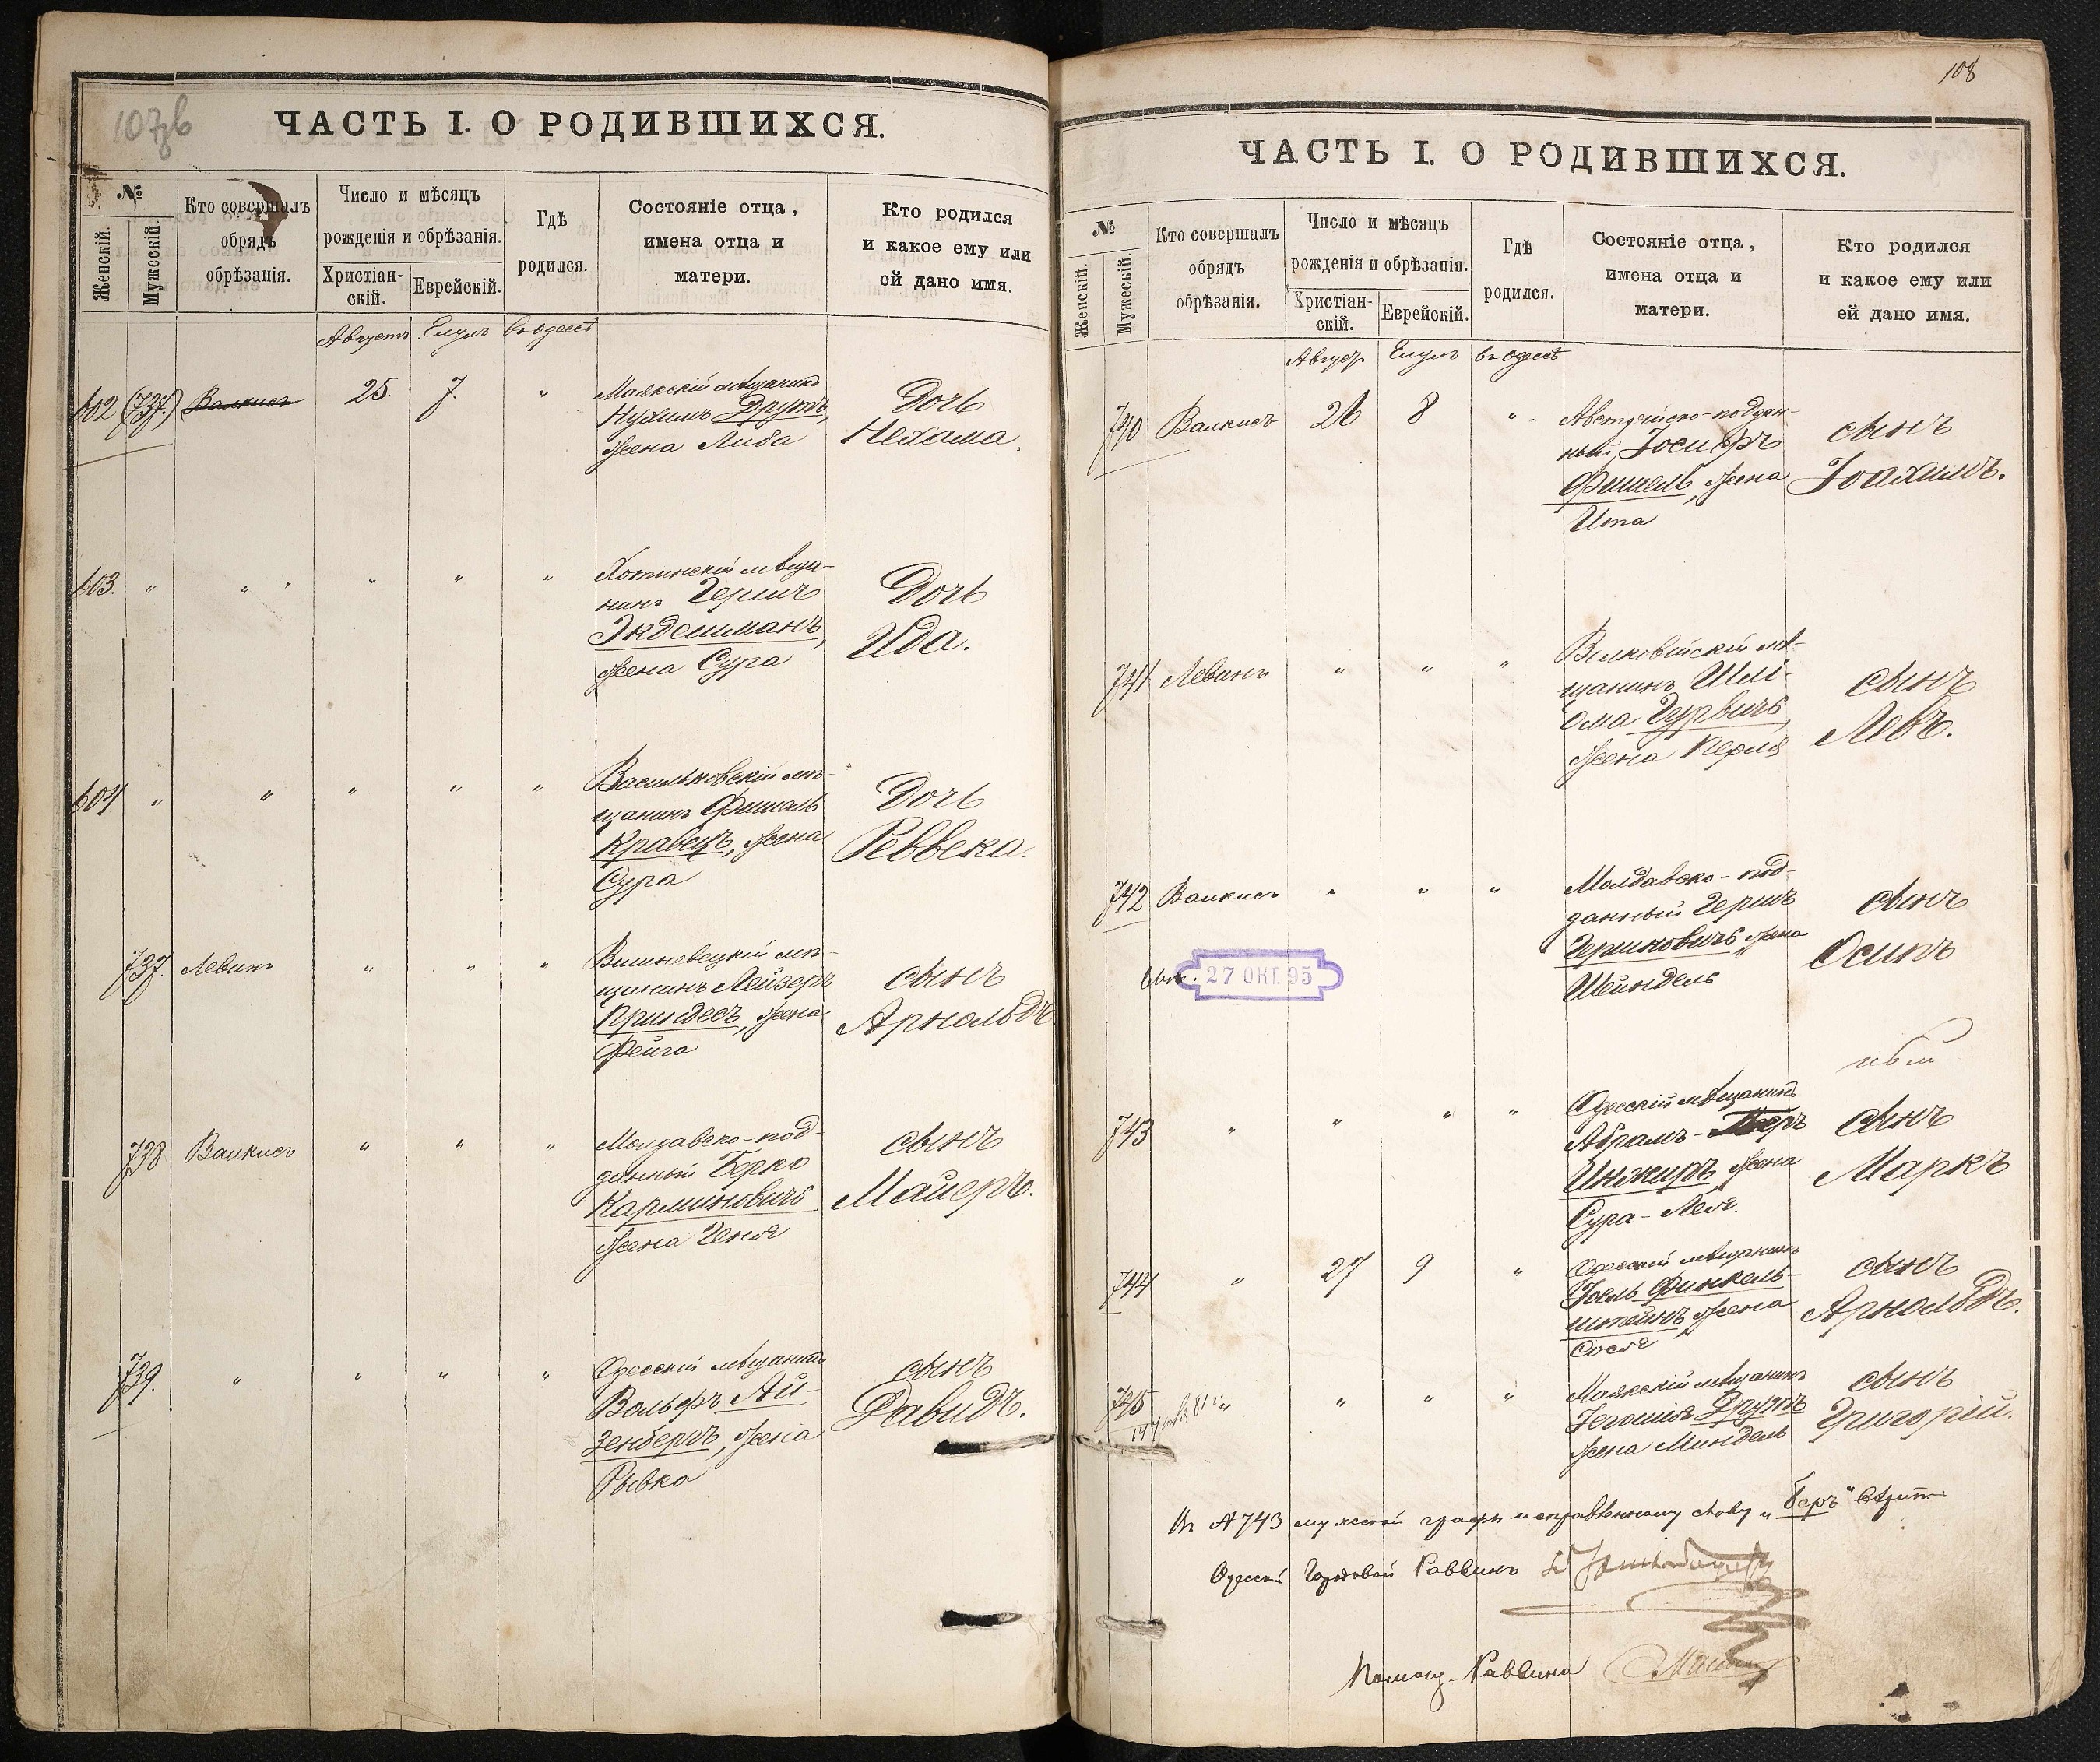 107об
ЧАСТЬ I. О РОДИВШИХСЯ.
№
Женскій.
Мужескій.
Кто совершалъ
обрядъ
обрѣзанія.
Число и мѣсяцъ
рожденія и обрѣзанія.
Христіан-
скій.
Еврейскій.
Гдѣ
родился.
Состояніе отца,
имена отца и
матери.
Кто родился
и какое ему или
ей дано имя.
Августъ Елулъ въ Одессѣ
602 (737.) Валкисъ 25. 7. "
Маякскій мѣщанинъ
Нухимъ Друтъ,
жена Либа
Дочь
Нехама.
603. " " " " "
Хотинскій мѣща-
нинъ Гершъ
Экдешманъ,
жена Сура
Дочь
Ида.
604 " " " " "
Васильковскій мѣ-
щанинъ Фишель
Кравецъ, жена
Сура
Дочь
Реввека.
737. Левинъ " " "
Вишневецкій мѣ-
щанинъ Лейзеръ
Приндесъ, жена
Фейга
сынъ
Арнольдъ
738 Валкисъ " " "
Молдавско-под-
данный Берко
Карминовичъ
жена Геня
сынъ
Майеръ.
739. " " " "
Одесскій мѣщанинъ
Вольфъ Ай-
зенбергъ, жена
Рывка
сынъ
Давидъ.
108
ЧАСТЬ I. О РОДИВШИХСЯ.
№
Женскій.
Мужескій.
Кто совершалъ
обрядъ
обрѣзанія.
Число и мѣсяцъ
рожденія и обрѣзанія.
Христіан-
скій.
Еврейскій.
Гдѣ
родился.
Состояніе отца,
имена отца и
матери.
Кто родился
и какое ему или
ей дано имя.
Август Елулъ въ Одессѣ
740 Валкисъ 26 8 "
Австрійско-поддан-
ный, Іосифъ
Фишель, жена
Ита
сынъ
Іоахимъ.
741 Левинъ " " "
Волковійскій мѣ-
щанинъ Шлі-
ома Гурвичъ,
жена Перля
сынъ
Левъ.
742 Валкисъ " " "
Молдавско-под-
данный Гершъ
Гершковичъ жена
Шейндель
сынъ
Осипъ
27 ОКТ. 95
743 " " " "
Одесскій мѣщанинъ
Абрамъ-Беръ
Инжиръ, жена
Сура-Лея.
сынъ
Маркъ
744 " 27 9 "
Одесскій мѣщанинъ
Іоель Финкель-
штейнъ жена
Сося
сынъ
Арнольдъ.
745 " " " "
Маякскій мѣщанинъ
Іегошія Друтъ
жена Миндель
сынъ
Григорій.
Въ №743 мужской графы исправленному слову „Беръ" вѣрить
Одесскій Городовой Раввинъ
Помощ. Раввина